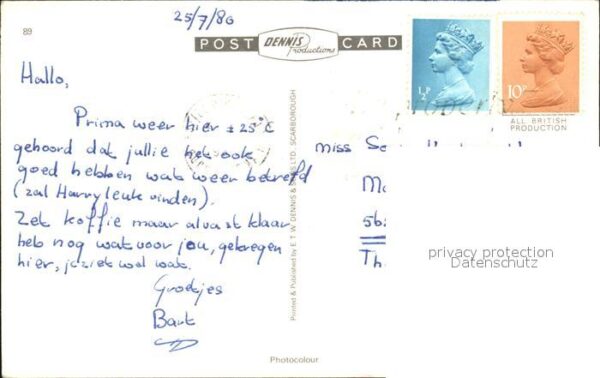 25/7/80
89
POST DENNIS Productions CARD
½P
10P
ALL BRITISH
PRODUCTION
Hallo,
Prima weer hier ± 25°C
gehoord dat jullie het ook
goed hebben wat weer betreft
(zal Harry leuk vinden).
Zet koffie maar alvast klaar
heb nog wat voor jou, gekregen
hier, je ziet wel wat.
Groetjes
Bart
Printed & Published by E. T. W. DENNIS & SONS LTD. SCARBOROUGH
miss
56
Th
privacy protection
Datenschutz
Photocolour